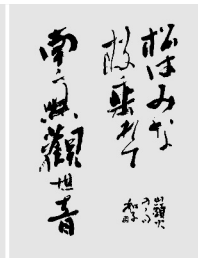 松はみな
枝垂れて
南無觀世音
山頭火